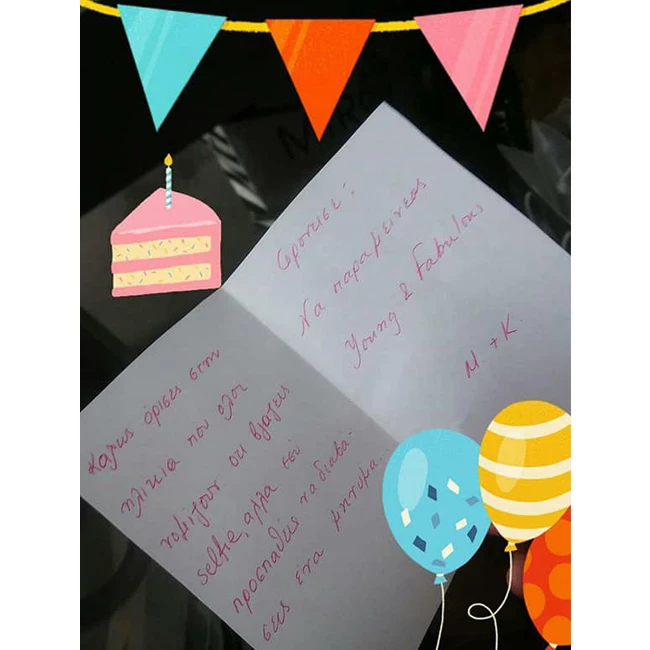 Καλως όρισες στην
ηλικία που ολοι
νομίζουν οτι βγαζεις
selfie, αλλα εσυ
προσπαθείς να διαβα-
σεις ενα μηνυμα...
Φροντισε:
Να παραμεινεις
Young & Fabulous
M. + K.